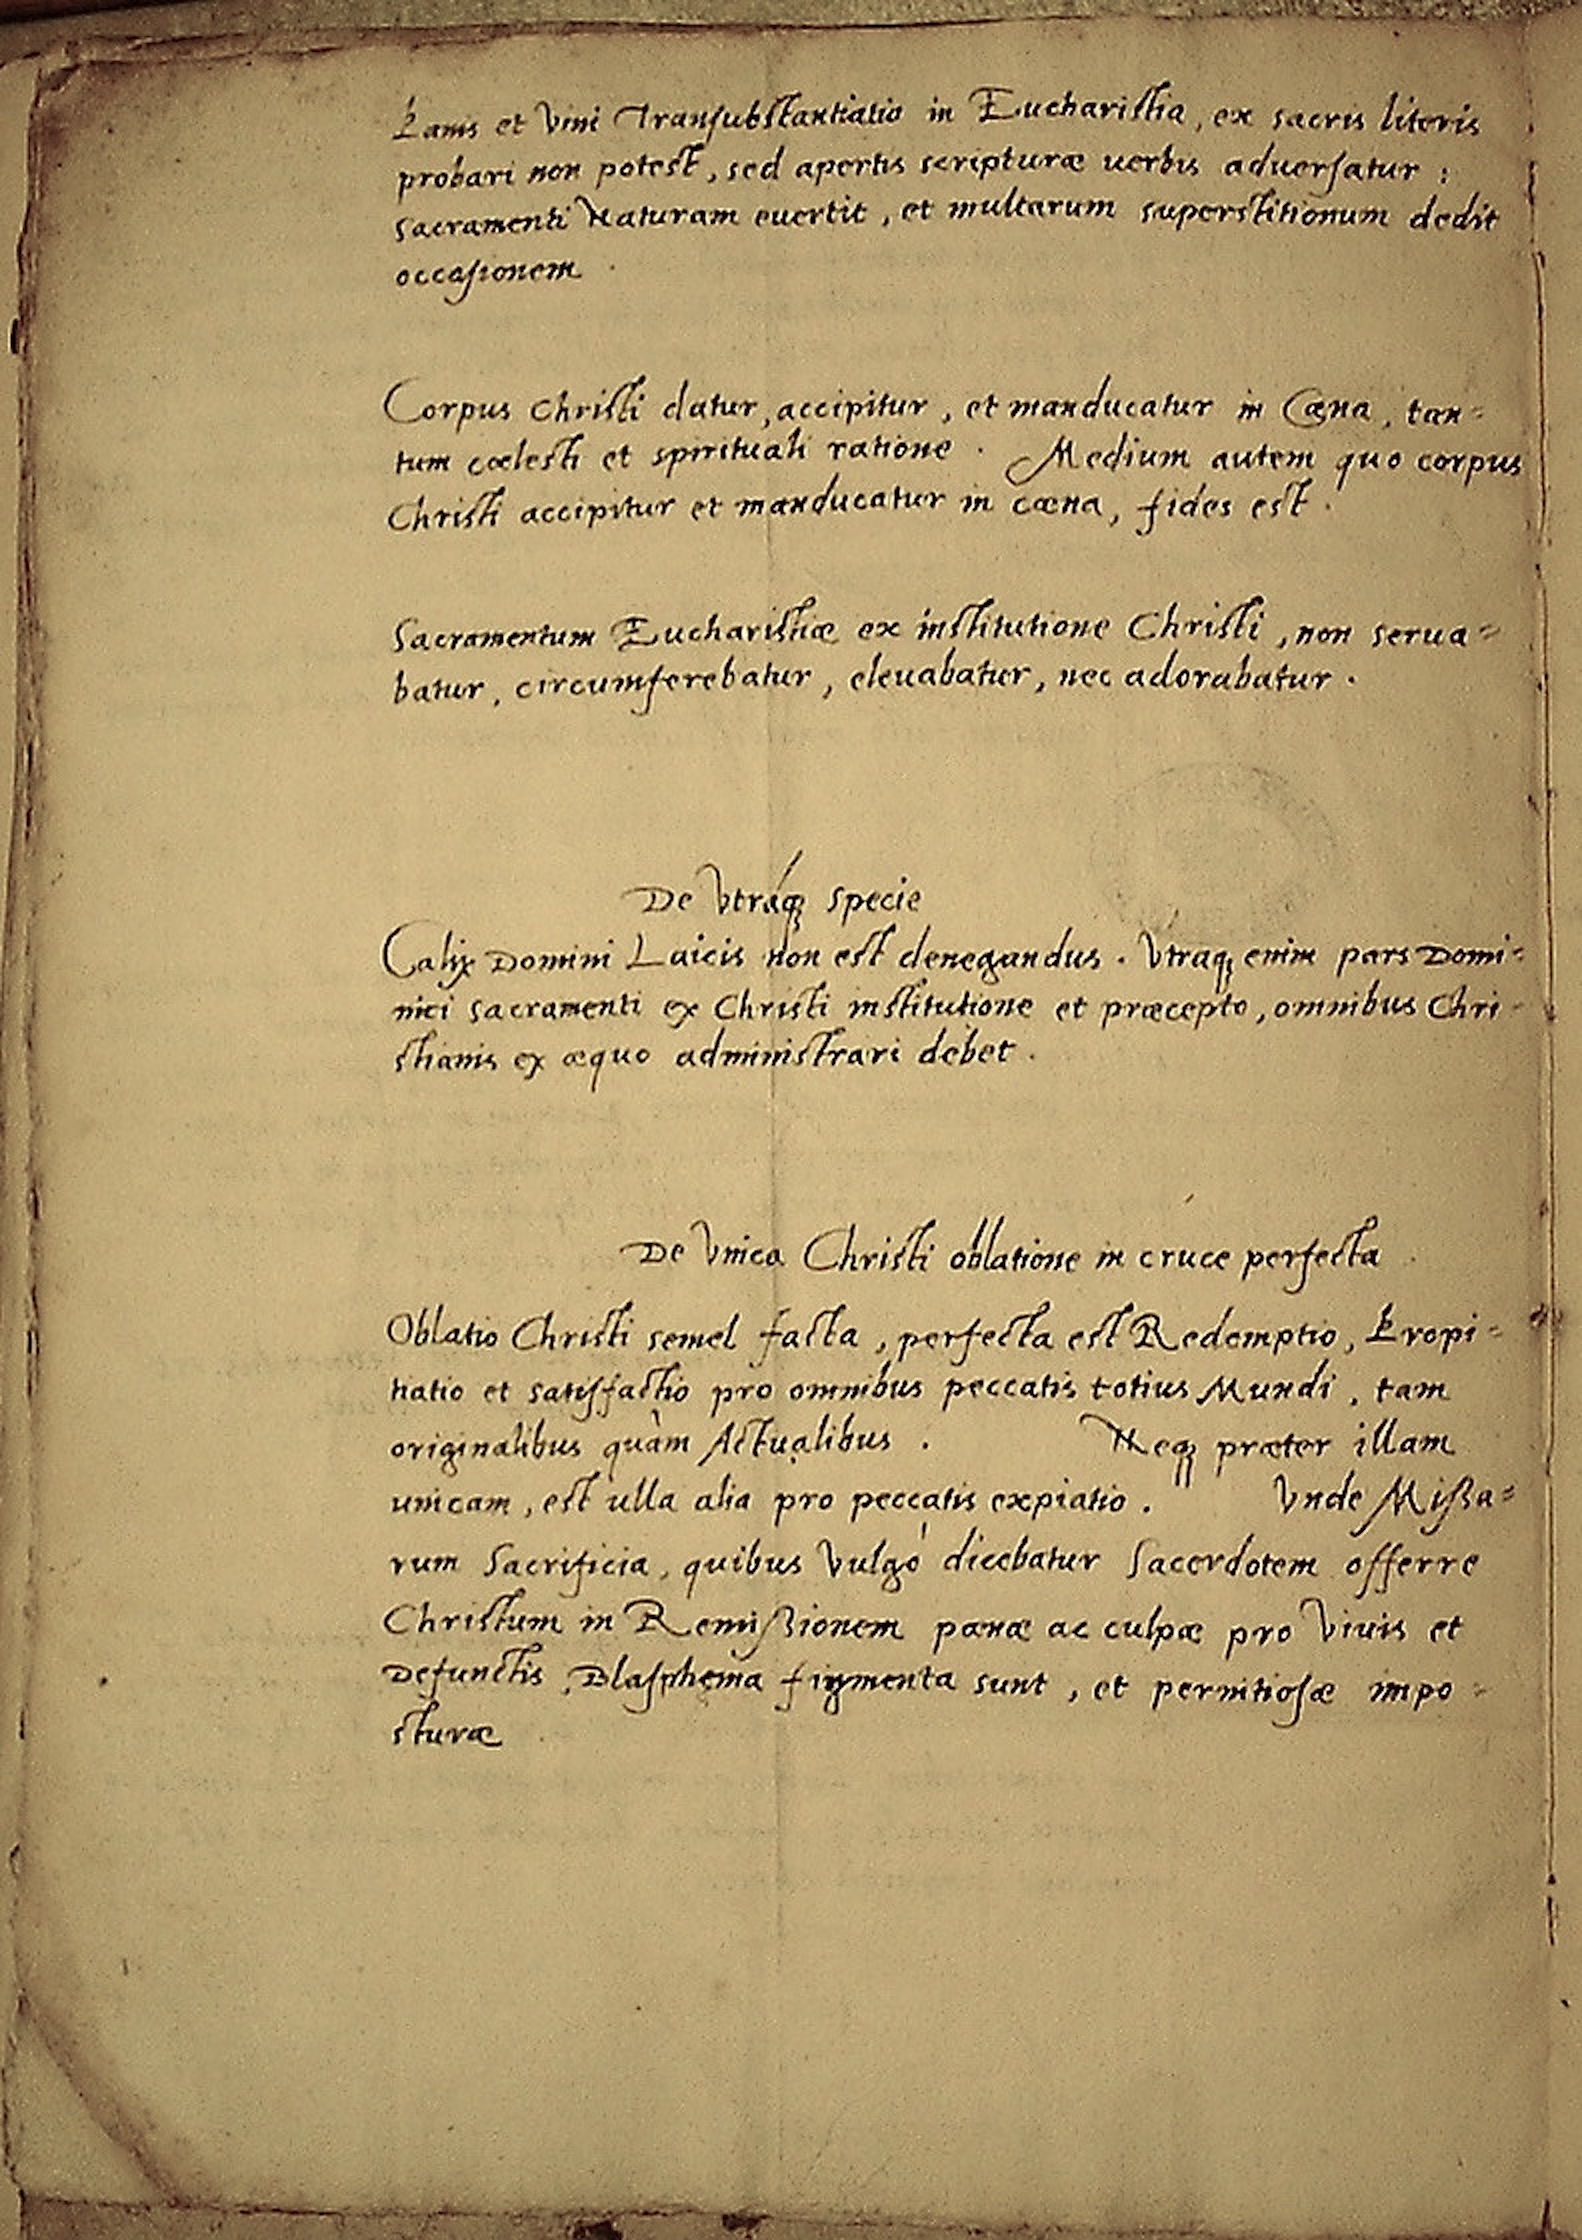 Panis et Vini Transubstantiatio in Eucharistia, ex sacris literis
probari non potest, sed apertis scripturæ uerbis aduersatur :
sacramenti Naturam euertit, et multarum superstitionum dedit
occasionem .
Corpus Christi datur, accipitur, et manducatur in Cœna, tan=
tum cœlesti et spirituali ratione . Medium autem quo corpus
Christi accipitur et manducatur in cœna, fides est .
Sacramentum Eucharistiæ ex institutione Christi, non serua=
batur, circumferebatur, eleuabatur, nec adorabatur .
De Vtráq; specie
Calix Domini Laicis non est denegandus . Vtraq; enim pars Domi=
nici sacramenti ex Christi institutione et præcepto, omnibus Chri-
stianis ex æquo administrari debet .
De Vnica Christi oblatione in cruce perfecta .
Oblatio Christi semel facta, perfecta est Redemptio, Propi=
tiatio et satisfactio pro omnibus peccatis totius Mundi, tam
originalibus quàm Actualibus . Neq; præter illam
unicam, est ulla alia pro peccatis expiatio . Vnde Mißa=
rum Sacrificia, quibus Vulgó dicebatur Sacerdotem offerre
Christum in Remißionem pœnæ ac culpæ pro Viuis et
Defunctis, Blasphema figmenta sunt, et pernitiosæ impo=
sturæ .